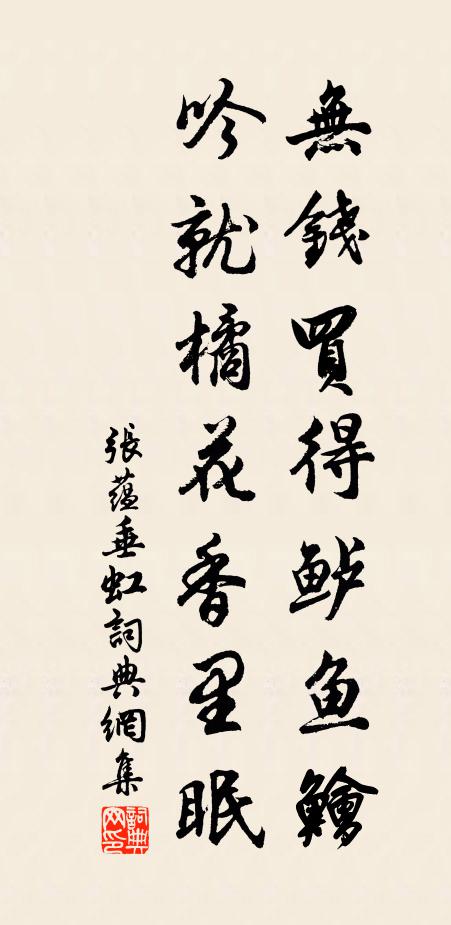 無錢買得鲈鱼鱠
吟就橘花香里眠
張蘊垂虹詞典網集
詞典網印